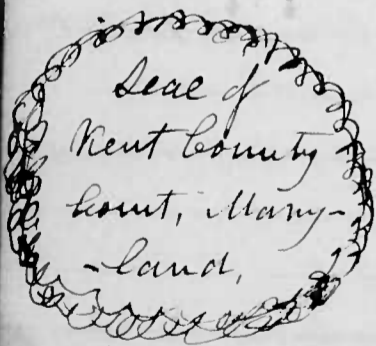 Seal of
Kent County
Court, Mary-
-land,